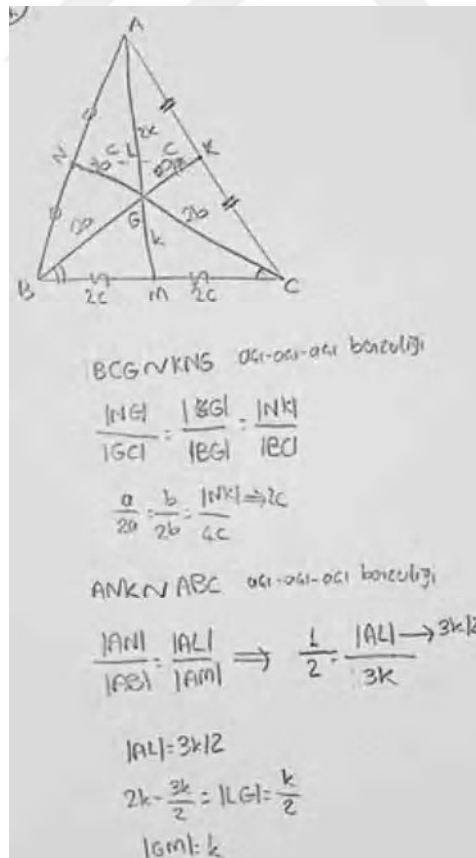 A
2k
N
L
C
C
K
G
2b
k
B
2c
M
2c
C
BCG ~ KNG açı-açı-açı benzerliği
|NG| / |GC| = |KG| / |BG| = |NK| / |BC|
a/2a = b/2b = |NK| ⇒ 2c / 4c
ANK ~ ABC açı-açı-açı benzerliği
|AN| / |AB| = |AL| / |AM| ⇒ 1/2 = |AL| → 3k/2 / 3k
|AL| = 3k/2
2k - 3k/2 = |LG| = k/2
|GM| = k